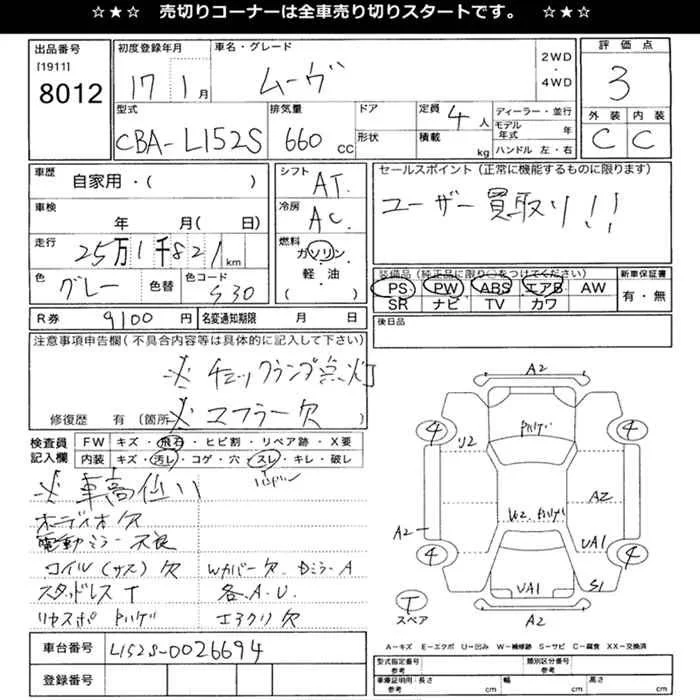 ☆★☆ 売切りコーナーは全車売り切りスタートです。 ☆★☆
出品番号 初度登録年月 車名・グレード 2WD・4WD 評価点
[1911]
8012 17 1月 ムーヴ 3
型式 排気量 ドア 定員 4人 ディーラー・並行 外装 内装
CBA-L152S 660cc 形状 積載 kg モデル年式 年 C C
ハンドル 左・右
車歴 自家用・( ) シフト AT セールスポイント (正常に機能するものに限ります)
車検 年 月( 日) 冷房 AC ユーザー買取り!!
走行 25万1千821km 燃料 ガソリン・軽・油 ( )
色 グレー 色替 色コード S30
装備品 (純正品に限り○をつけてください) 新車保証書
PS PW ABS エアB AW 有・無
SR ナビ TV カワ
R券 9100円 名変通知期限 月 日 後日品
注意事項申告欄 (不具合内容等は具体的に記入して下さい)
※チェックランプ点灯
修復歴 有 (箇所 ) ※マフラー欠
検査員記入欄 FW キズ・飛石・ヒビ割・リペア跡・X要
内装 キズ・汚レ・コゲ・穴・スレ・キレ・破レ
ハンドル
※車高低い
オーディオ欠
電動ミラー不良
コイル(サス)欠 Wカバー欠 DミラーA
スタッドレスT 各A.U.
リヤスポ ハゲ エアクリ欠
A2
4 4
U2 ハゲ
A2
A2 W2 ハゲ
UA1
4 4
UA1 S1
T スペア A2
車台番号 L152S-0026694
登録番号
A=キズ E=エクボ U=凹み W=補修跡 S=サビ C=腐食 XX=交換済
型式指定番号 参考 類別区分番号 参考
車庫証明用・長さ 参考 cm 幅 cm 高さ cm